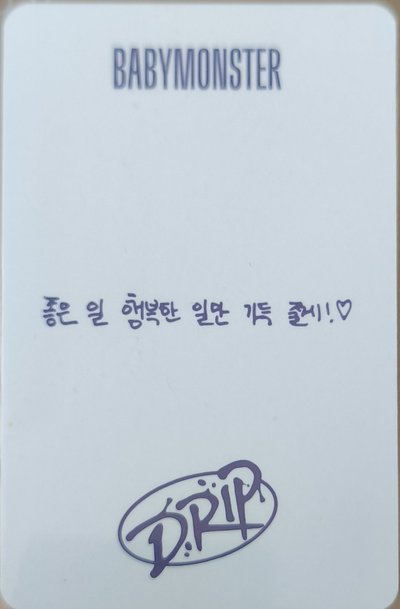 BABYMONSTER
좋은 일 행복한 일만 가득 줄게!♡
DRIP